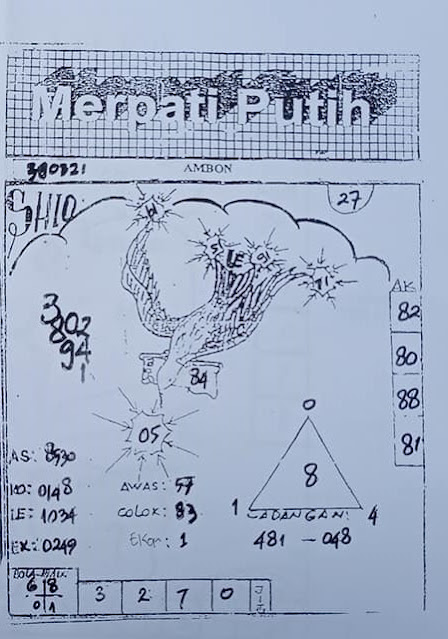 Merpati Putih
AMBON
SHIO:
27
AK
82
80
88
81
3
802
94
1
84
05
0
8
1
4
AS: 8930
KO: 0148
LE: 1034
EK: 0249
AWAS: 57
COLOK: 83
EKOR: 1
CADANGAN:
481 - 048
6 8
0 1
3 2 7 0